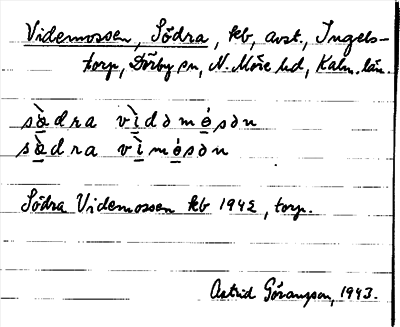 Videmossen, Södra, kb, avst., Ingels-
torp, Dörby sn, N. Möre hd, Kalm. län.
sø̀dra vìdəmósən
sø̀dra vìmósən
Södra Videmossen kb 1942, torp.
Astrid Göransson, 1943.